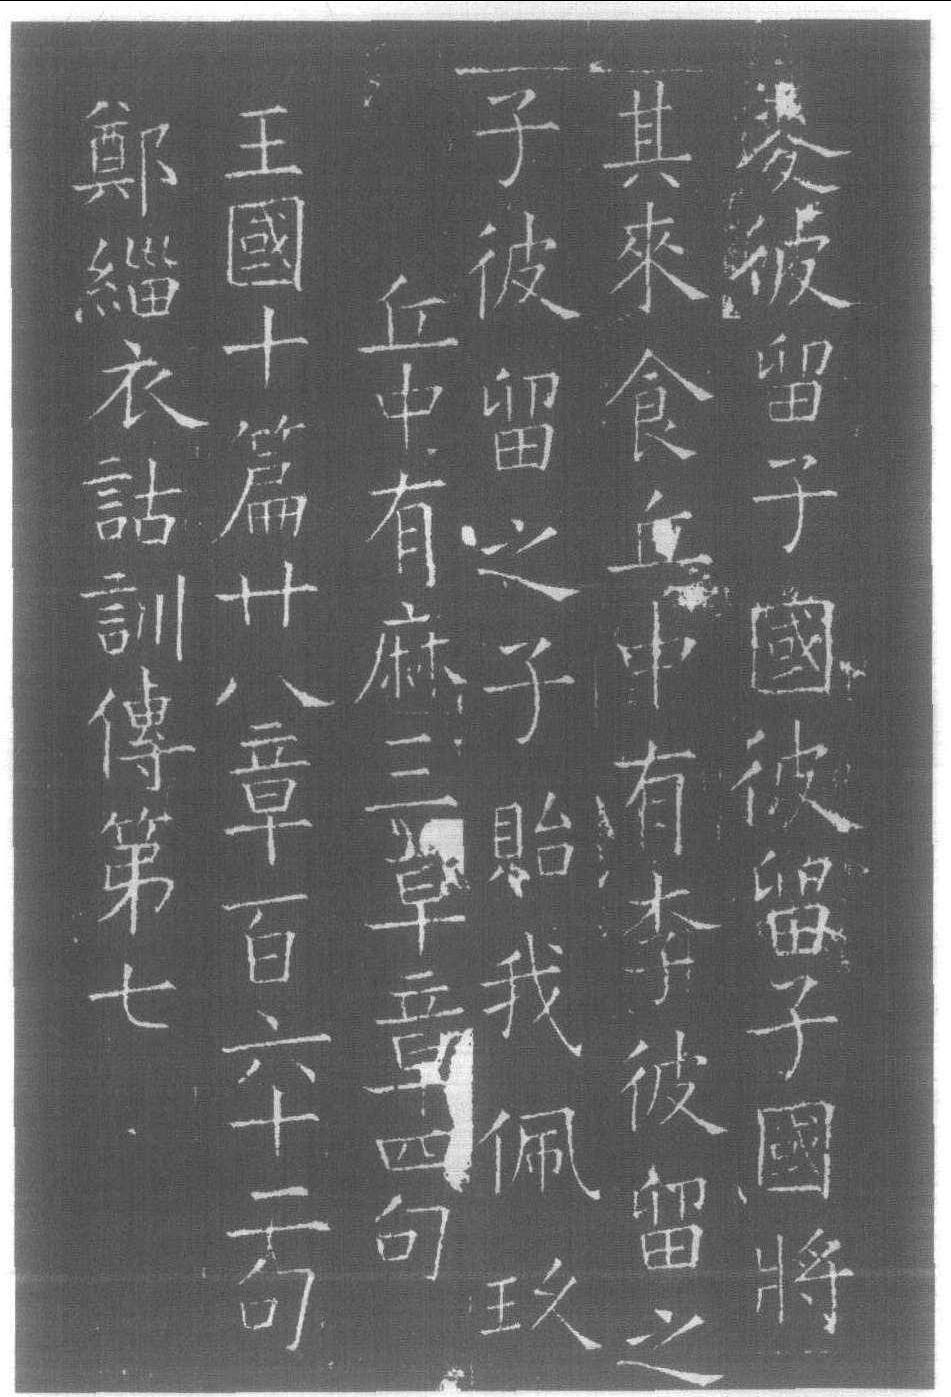 麥彼留子國彼留子國將
其來食丘中有李彼留之
子彼留之子貽我佩玖
丘中有麻三章章四句
王國十篇廿八章百六十二句
鄭緇衣詁訓傳第七